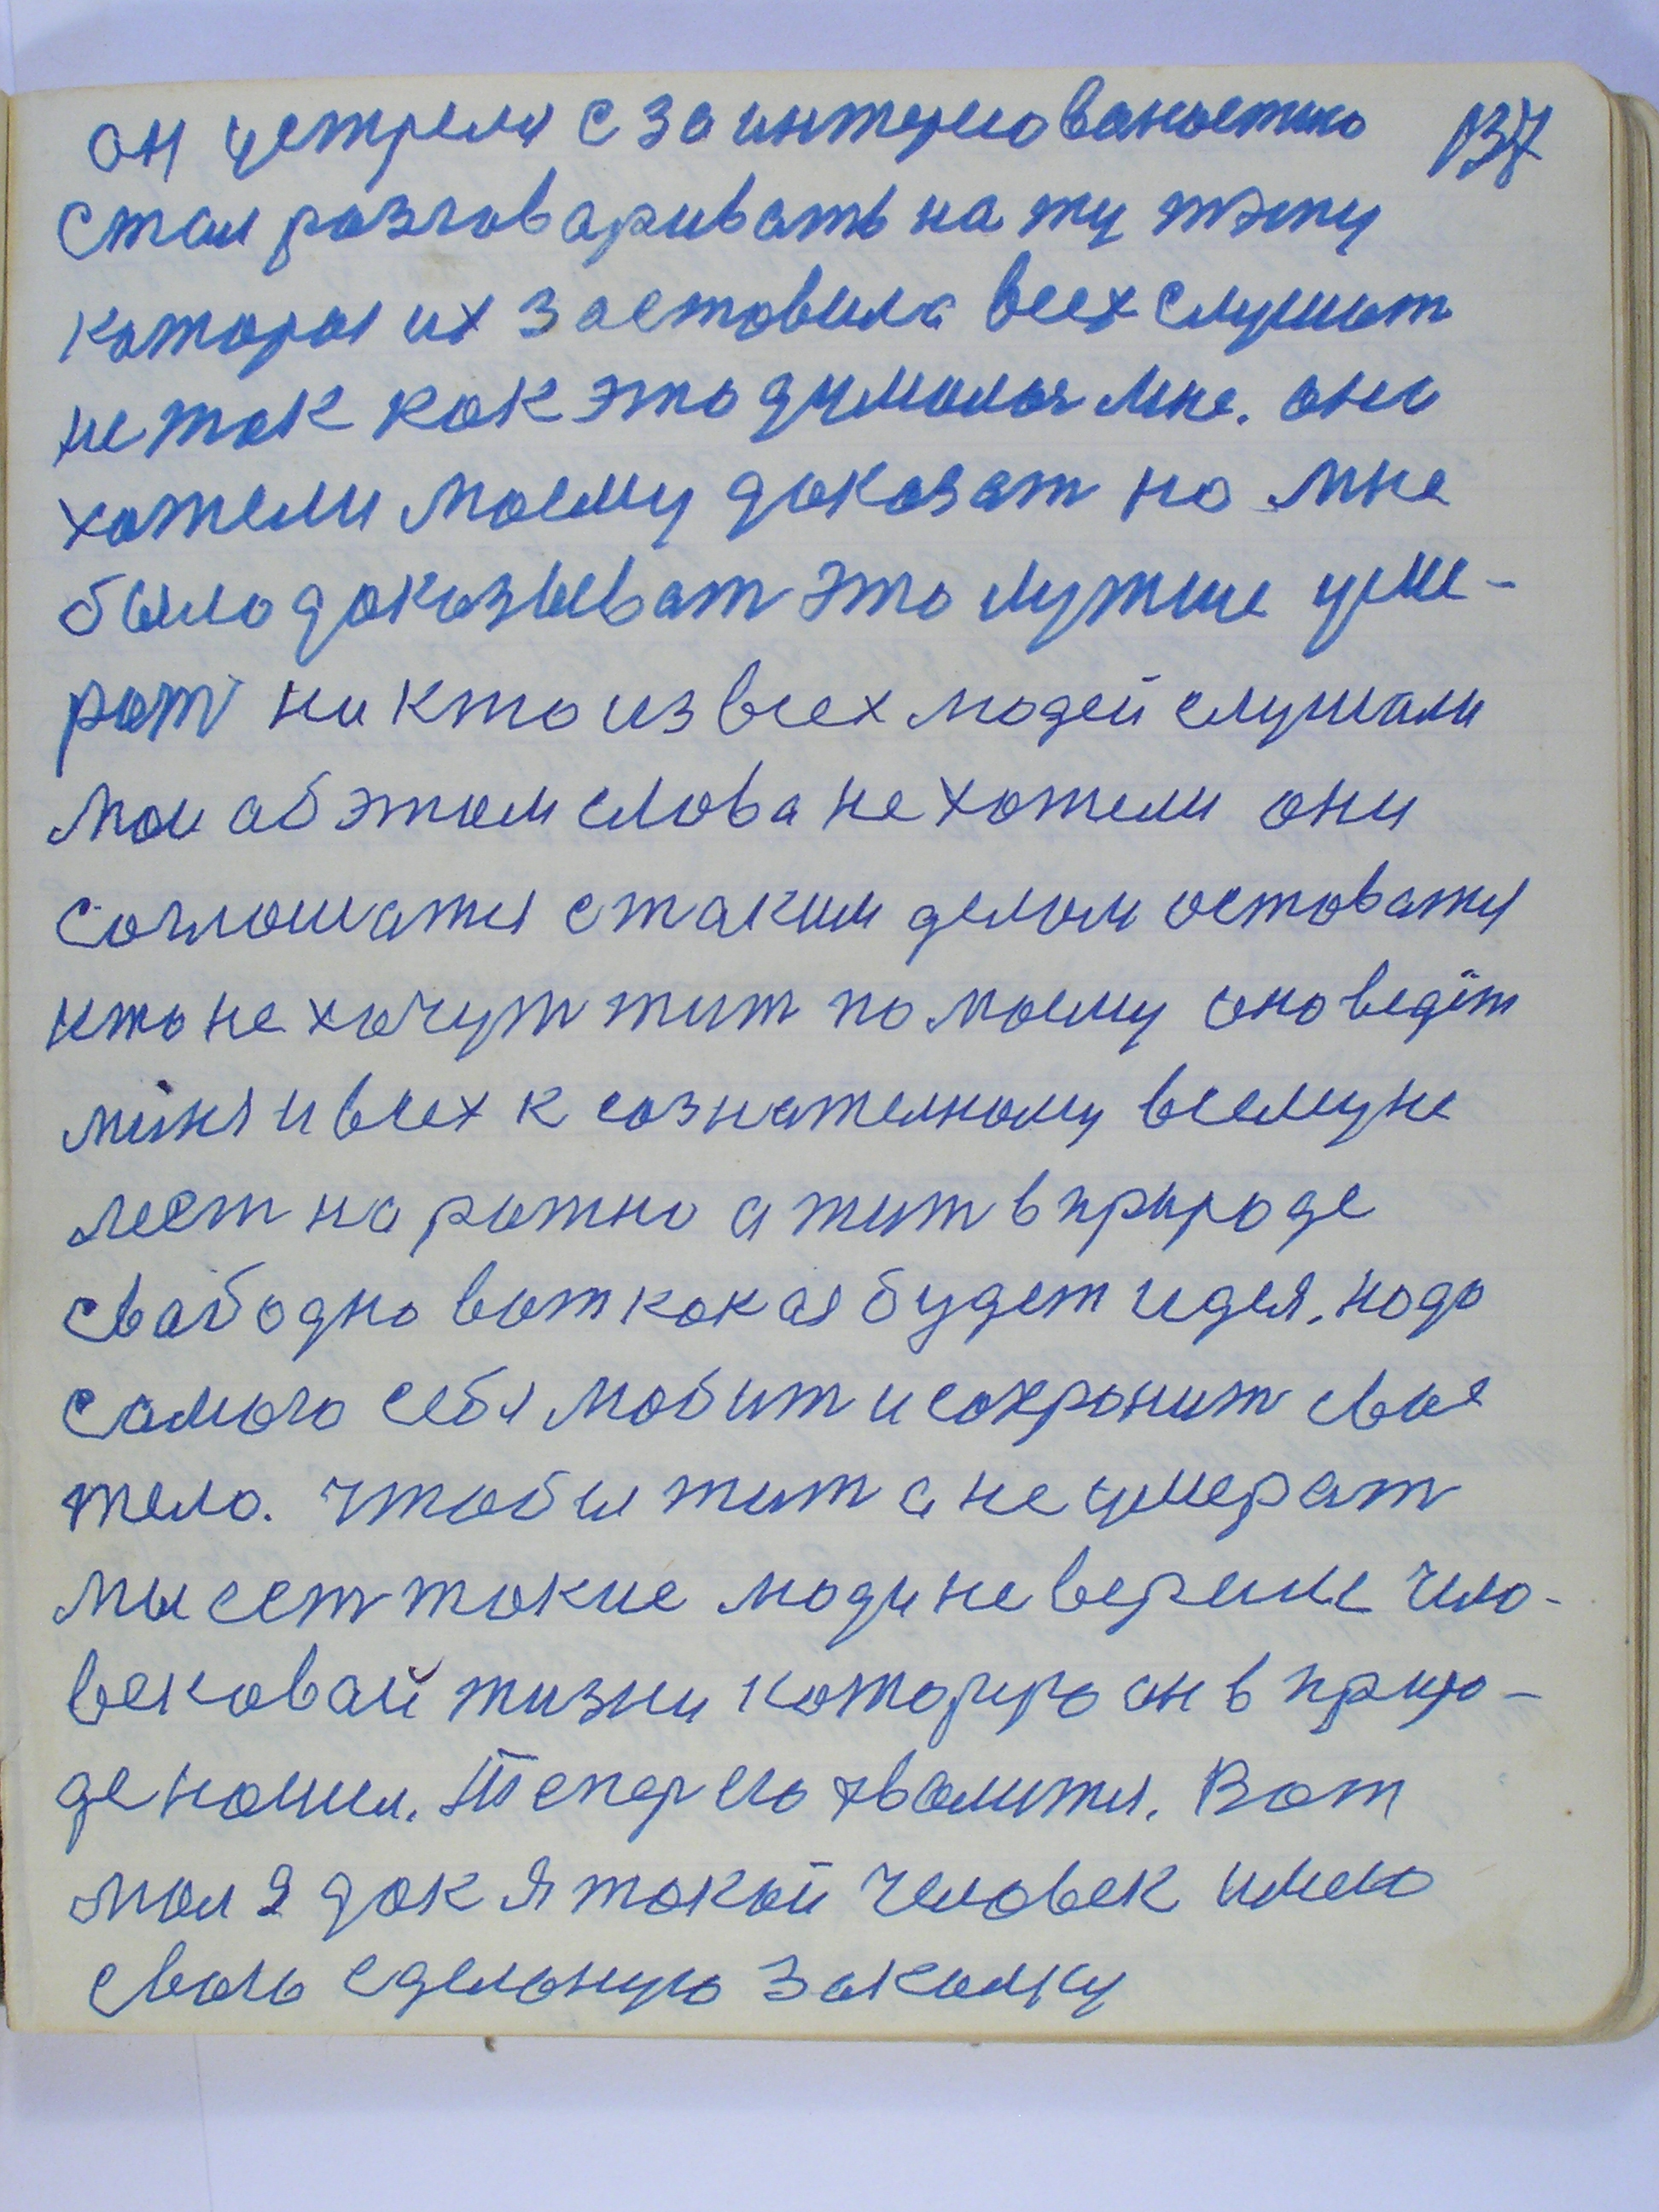 он устрелся с заинтересованостию 137
стал разговаривать на ту тэму
которая их заставила всех слушат
не так как это думалося мне. они
хотели моему доказат но мне
было доказыват это лутше уме-
рат ни кто из всех людей слушали
мои аб этом слова не хотели они
соглошатся с таким делом оставатся
кто не хочут жит по моему оно ведёт
миня и всех к сознателному всему не
лест на ражно а жит в природе
свабодно вот какая будет идея. надо
самого себя любит и сохранит свое
тело. чтобы жит а не умерат
мы ест такие люди не верили чило-
вековай жизни которую он в приро-
де нашел. Тепер его хвалится. Вот
мол я дак я такой человек имею
свою сделоную закалку